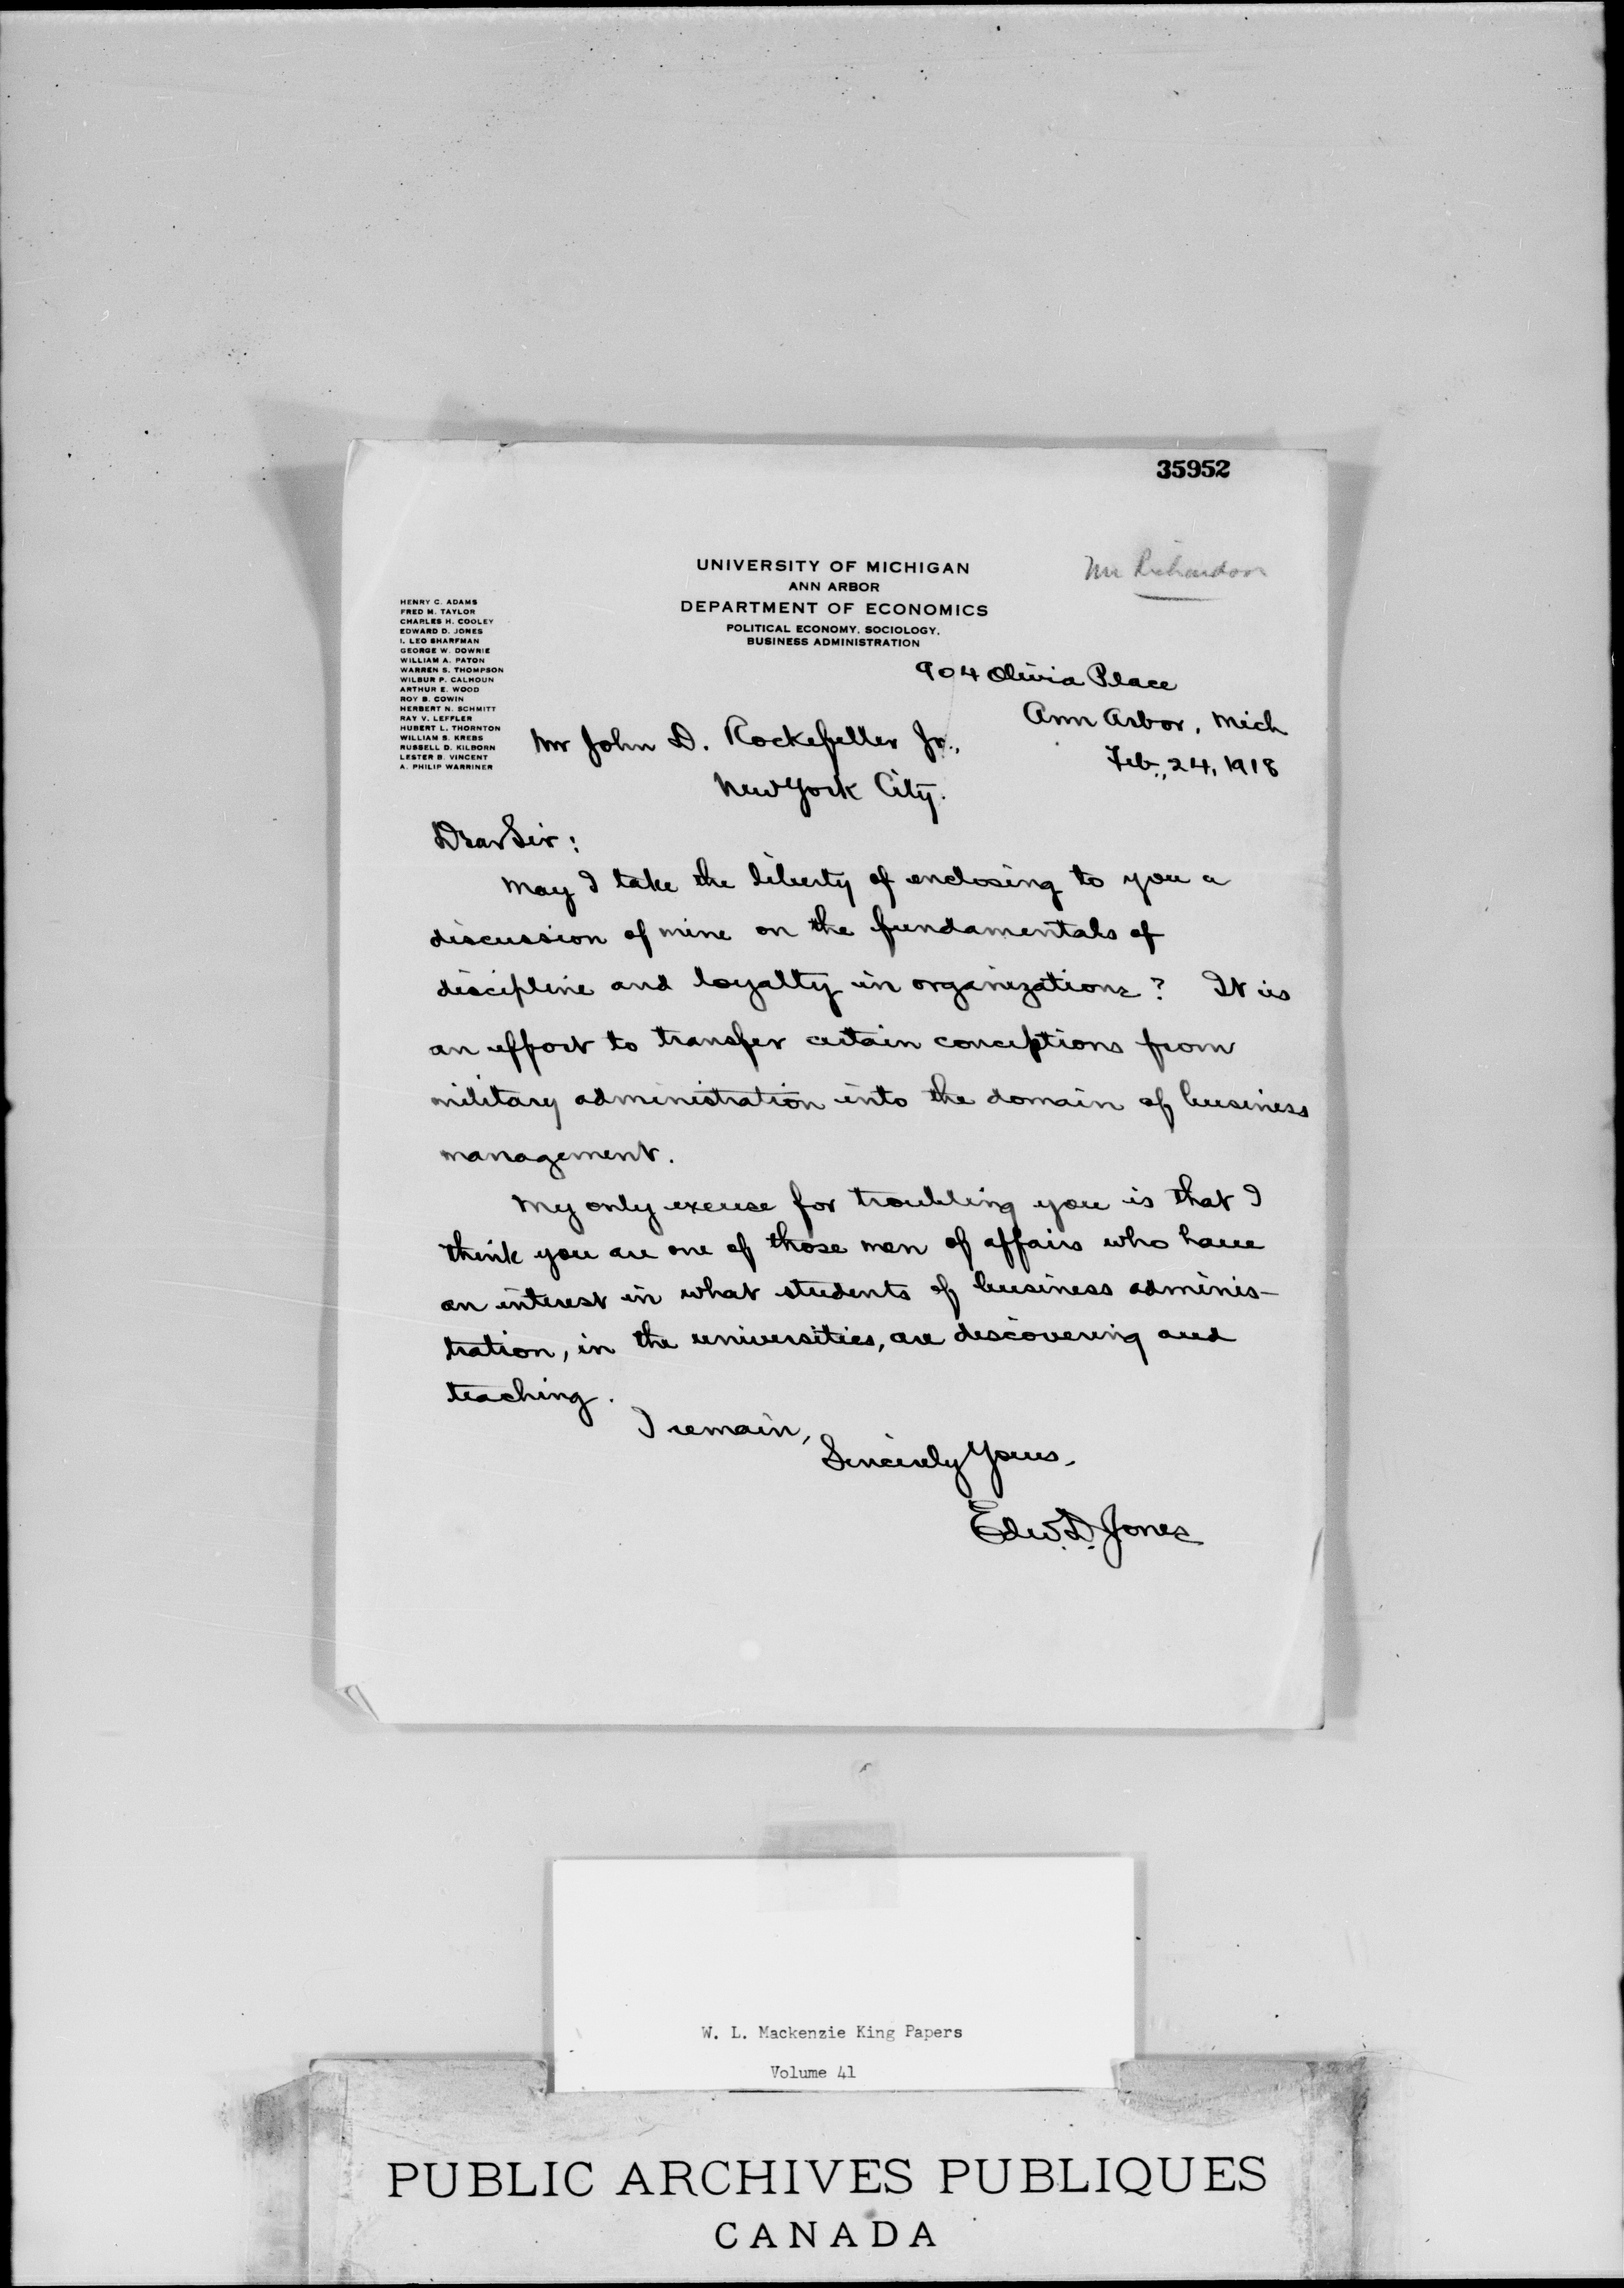 35952
Mr Richardson
UNIVERSITY OF MICHIGAN
ANN ARBOR
DEPARTMENT OF ECONOMICS
POLITICAL ECONOMY, SOCIOLOGY,
BUSINESS ADMINISTRATION
HENRY C. ADAMS
FRED M. TAYLOR
CHARLES H. COOLEY
EDWARD D. JONES
I. LEO SHARFMAN
GEORGE W. DOWRIE
WILLIAM A. PATON
WARREN S. THOMPSON
WILBUR P. CALHOUN
ARTHUR E. WOOD
ROY B. COWIN
HERBERT N. SCHMITT
RAY V. LEFFLER
HUBERT L. THORNTON
WILLIAM S. KREBS
RUSSELL D. KILBORN
LESTER B. VINCENT
A. PHILIP WARRINER
904 Olivia Place
Ann Arbor, Mich
Feb., 24, 1918
Mr John D. Rockefeller Jr.,
New York City.
Dear Sir:
May I take the liberty of enclosing to you a
discussion of mine on the fundamentals of
discipline and loyalty in organizations? It is
an effort to transfer certain conceptions from
military administration into the domain of business
management.
My only excuse for troubling you is that I
think you are one of those men of affairs who have
an interest in what students of business adminis-
tration, in the universities, are discovering and
teaching.
I remain,
Sincerely Yours,
Edw. D. Jones
W. L. Mackenzie King Papers
Volume 41
PUBLIC ARCHIVES PUBLIQUES
CANADA